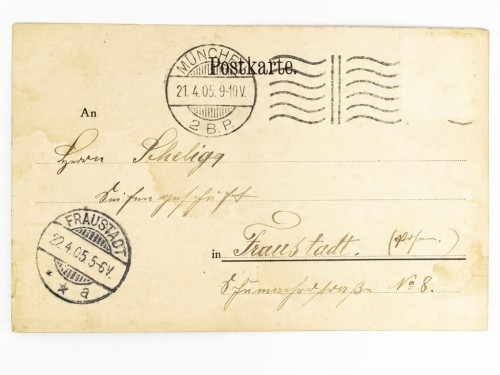 MÜNCHEN
Postkarte.
21.4.05.9-10V.
2 B.P.
An
Herrn Scheligg
Seifengeschäft
FRAUSTADT
22.4.05.5-6V.
* * a
in Fraustadt. (Posen.)
Schumacherstraße No 8.